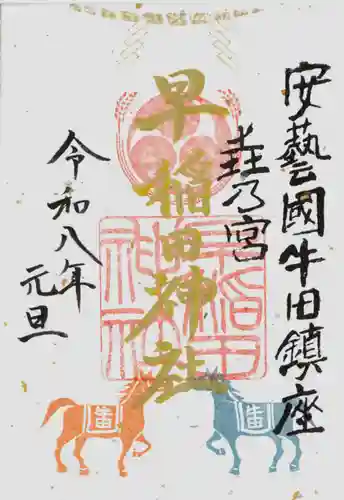 安藝國牛田鎮座
壵乃宮
早稲田神社
令和八年
元旦
早稲田
神社